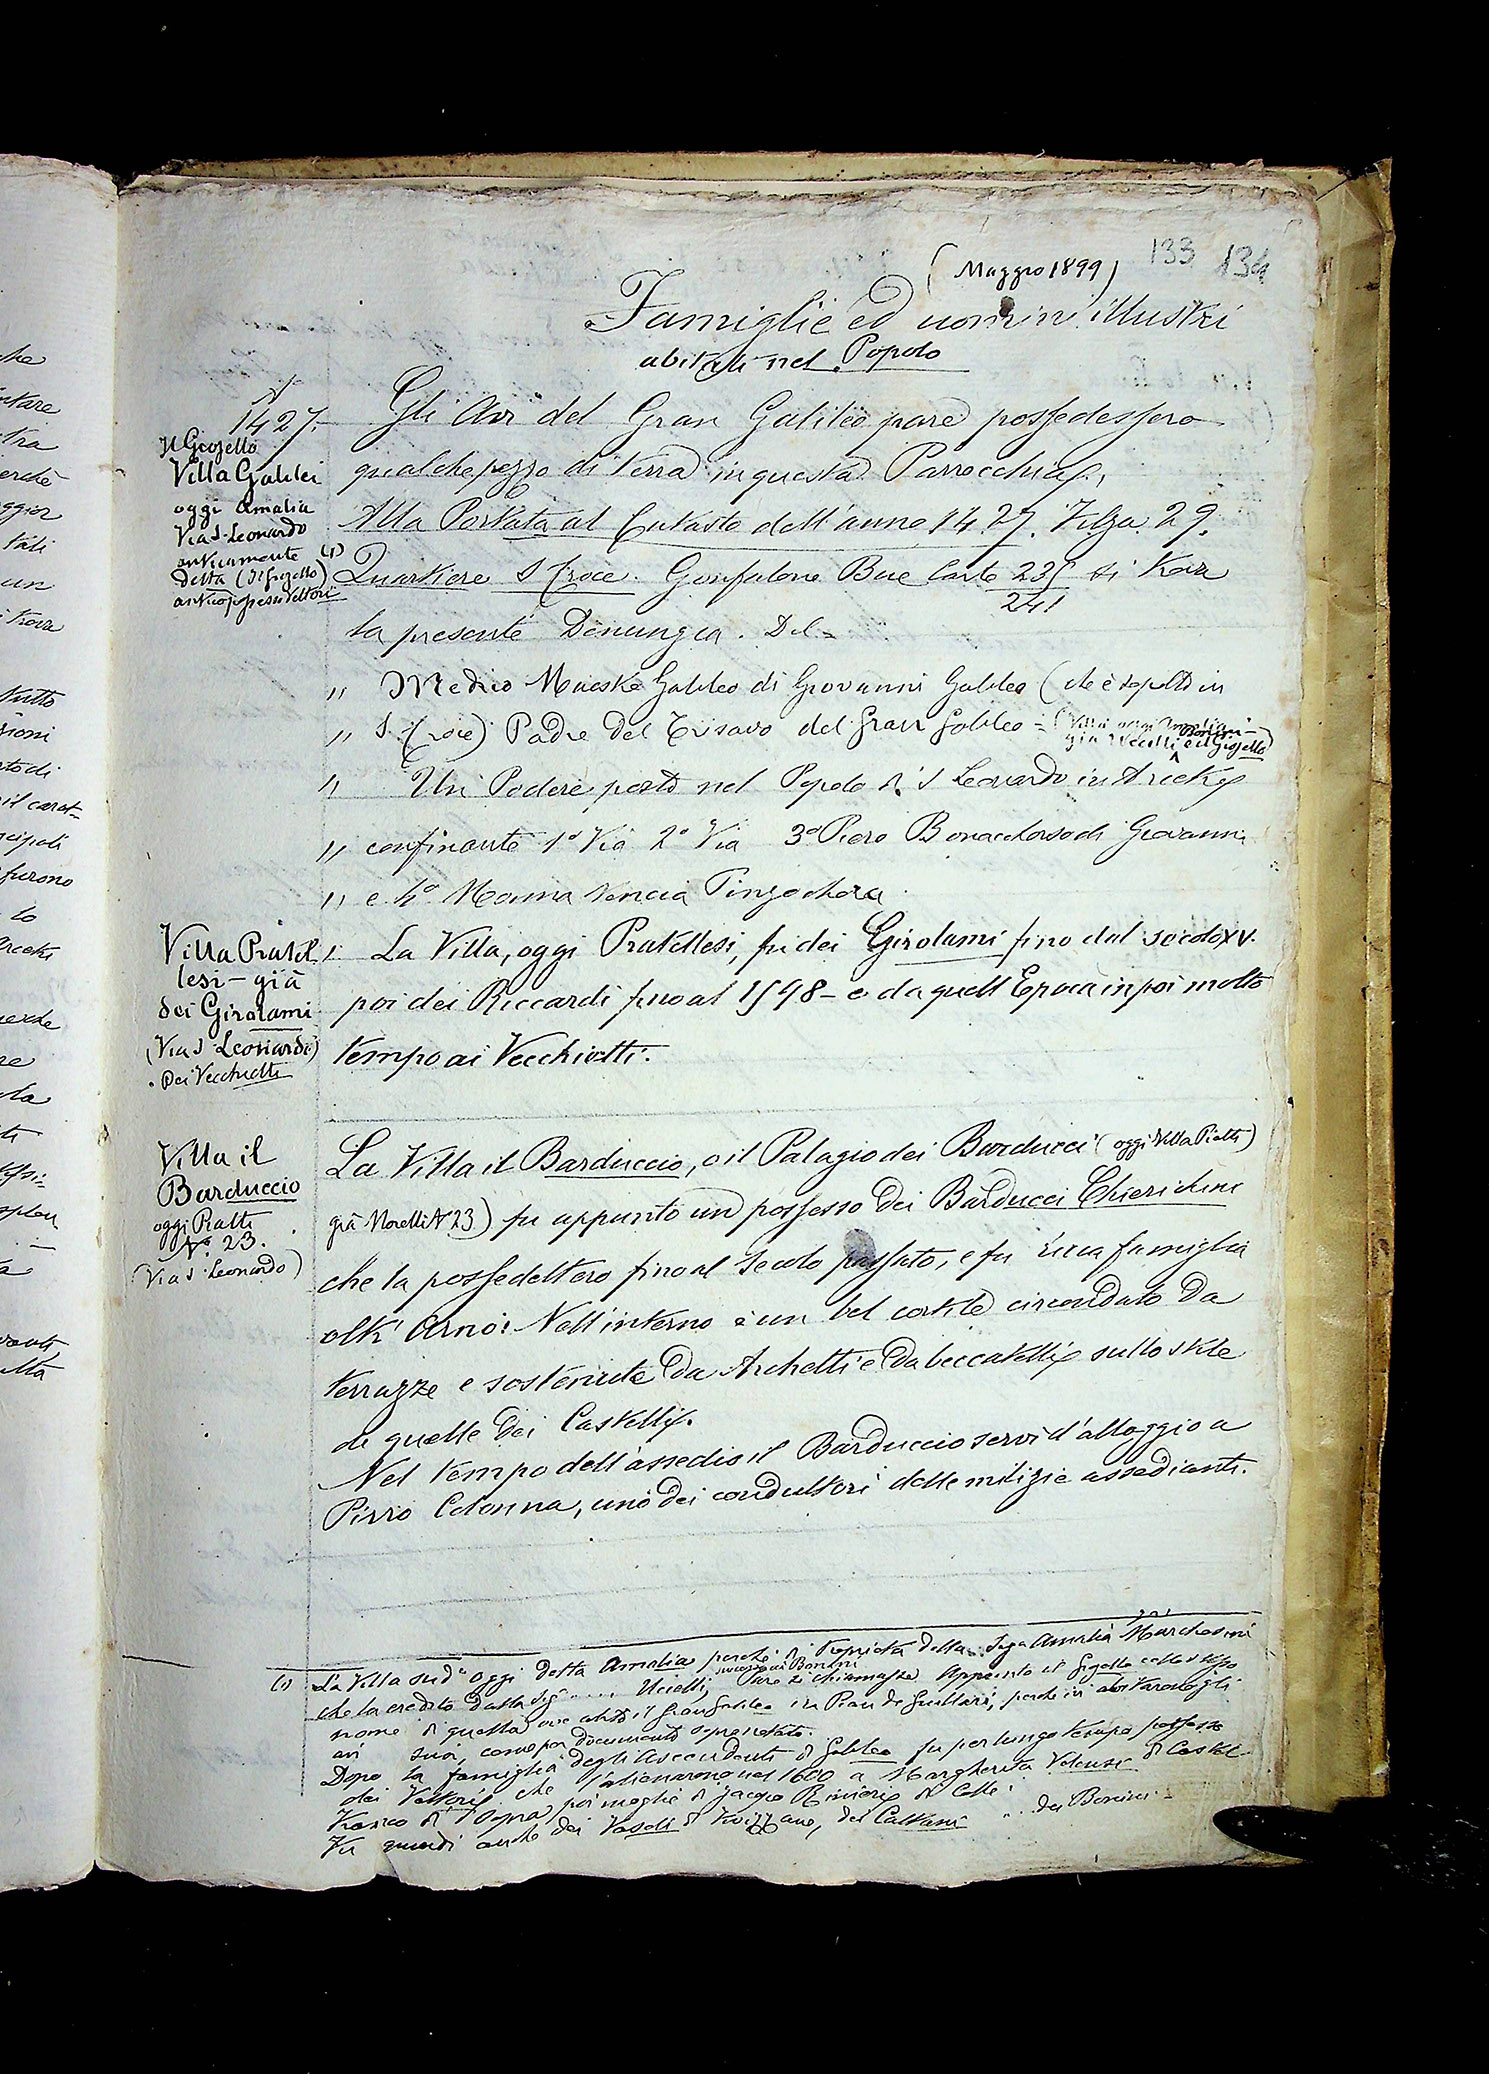 133 134
(Maggio 1899)
Famiglie ed uomini illustri
abitati nel Popolo
1427.
Il Giojello
Villa Galilei
oggi Amalia
Via S. Leonardo
anticamente (1)
detta (Il Giojello)
antico possesso Vettori
Gli Avi del Gran Galileo pare possedessero
qualche pezzo di terra in questa Parrocchia.
Alla Portata al Catasto dell'anno 1427. Filza 29.
Quartiere S Croce. Gonfalone Bue Carte 235 si trova
241
la presente Denunzia. Del =
" Medico Maestro Galileo di Giovanni Galileo (che è sepolto in
" S. Croce) Padre del Trisavo del Gran Galileo = (Villa oggi
già Uccelli e il Giojello)
" Un Podere posto nel Popolo di S Leonardo in Arcetri
" confinante 1º Via 2º Via 3º Piero Bonaccorso di Giovanni
" e 4º Monna Nencia Pinzochera
Villa Pratel
lesi - già
dei Girolami
(Via S Leonardo)
. Dei Vecchietti
La Villa, oggi Pratellesi, fu dei Girolami fino dal secolo XV.
poi dei Riccardi fino al 1598 - e da quell'Epoca in poi molto
tempo ai Vecchietti.
Villa il
Barduccio
oggi Piatti
Nº. 23.
(Via S. Leonardo)
La Villa il Barduccio, o il Palagio dei Barducci (oggi Villa Piatti)
già Morelli N 23) fu appunto un possesso dei Barducci Chierichini
che la possedettero fino al secolo passato, e fu ricca famiglia
oltr'Arno: Nell'interno è un bel cortile circondato da
terrazze e sostenute da Archetti e da beccatelli sullo stile
di quelle dei Castelli.
Nel tempo dell'assedio il Barduccio servì d'alloggio a
Pirro Colonna, uno dei conduttori delle milizie assedianti.
(1) La Villa sudª oggi detta Amalia perchè di Proprietà della Sigª Amalia Marchesini
che la eredito dalla Sigª .... Uccelli, successa ai Bonini Pare si chiamasse appunto il Giojello collo stesso
nome di quella ove abitò il Gran Galileo in Pian de Giullari, perchè vi abitarono gli
avi suoi, come per documento soprannotato.
Dopo la famiglia degli Ascendenti di Galileo fu per lungo tempo possesso
dei Vettori che l'alienarono nel 1600 a Margherita di Castel
Franco di Sopra, poi moglie di Jacopo Rinieri di Colle:
Fu quindi anche dei Vasoli di Fivizzano, dei Calvani .. dei Bonini =